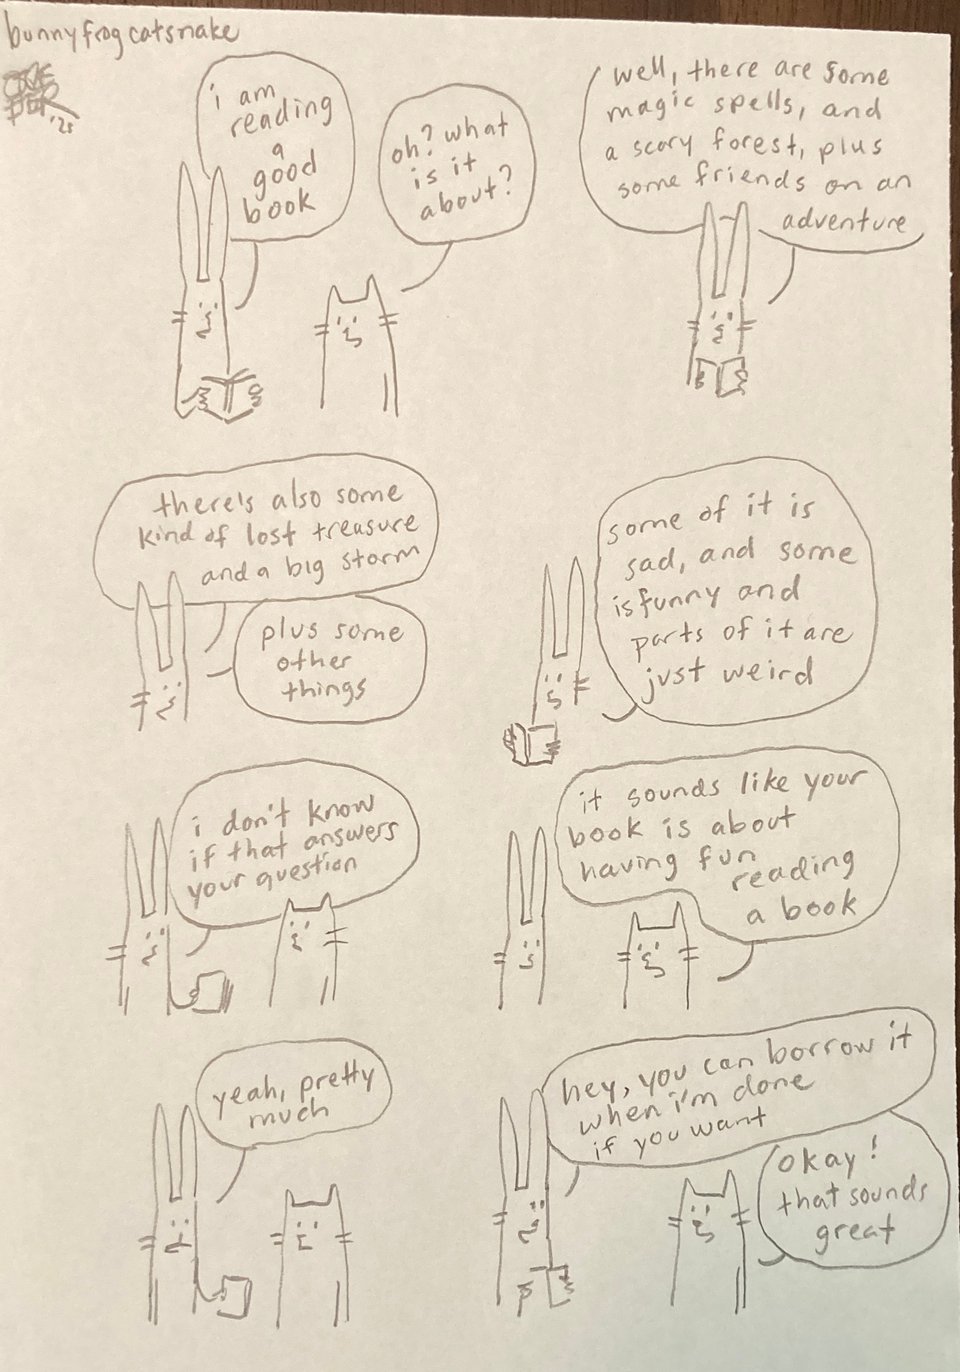 bunnyfrogcatsnake
'25
i am
reading
a
good
book
oh? what
is it
about?
well, there are some
magic spells, and
a scary forest, plus
some friends on an
adventure
there's also some
kind of lost treasure
and a big storm
plus some
other
things
some of it is
sad, and some
is funny and
parts of it are
just weird
i don't know
if that answers
your question
it sounds like your
book is about
having fun
reading
a book
yeah, pretty
much
hey, you can borrow it
when i'm done
if you want
okay!
that sounds
great